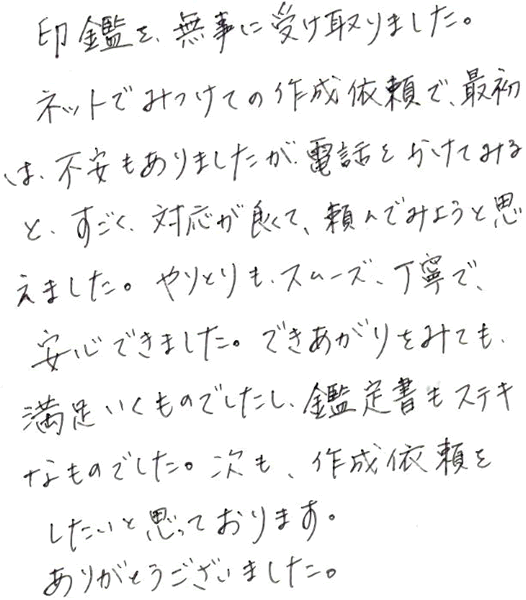 印鑑を、無事に受け取りました。
ネットでみつけての作成依頼で、最初
は、不安もありましたが、電話をかけてみる
と、すごく、対応が良くて、頼んでみようと思
えました。やりとりも、スムーズ、丁寧で、
安心できました。できあがりをみても、
満足いくものでしたし、鑑定書もステキ
なものでした。次も、作成依頼を
したいと思っております。
ありがとうございました。